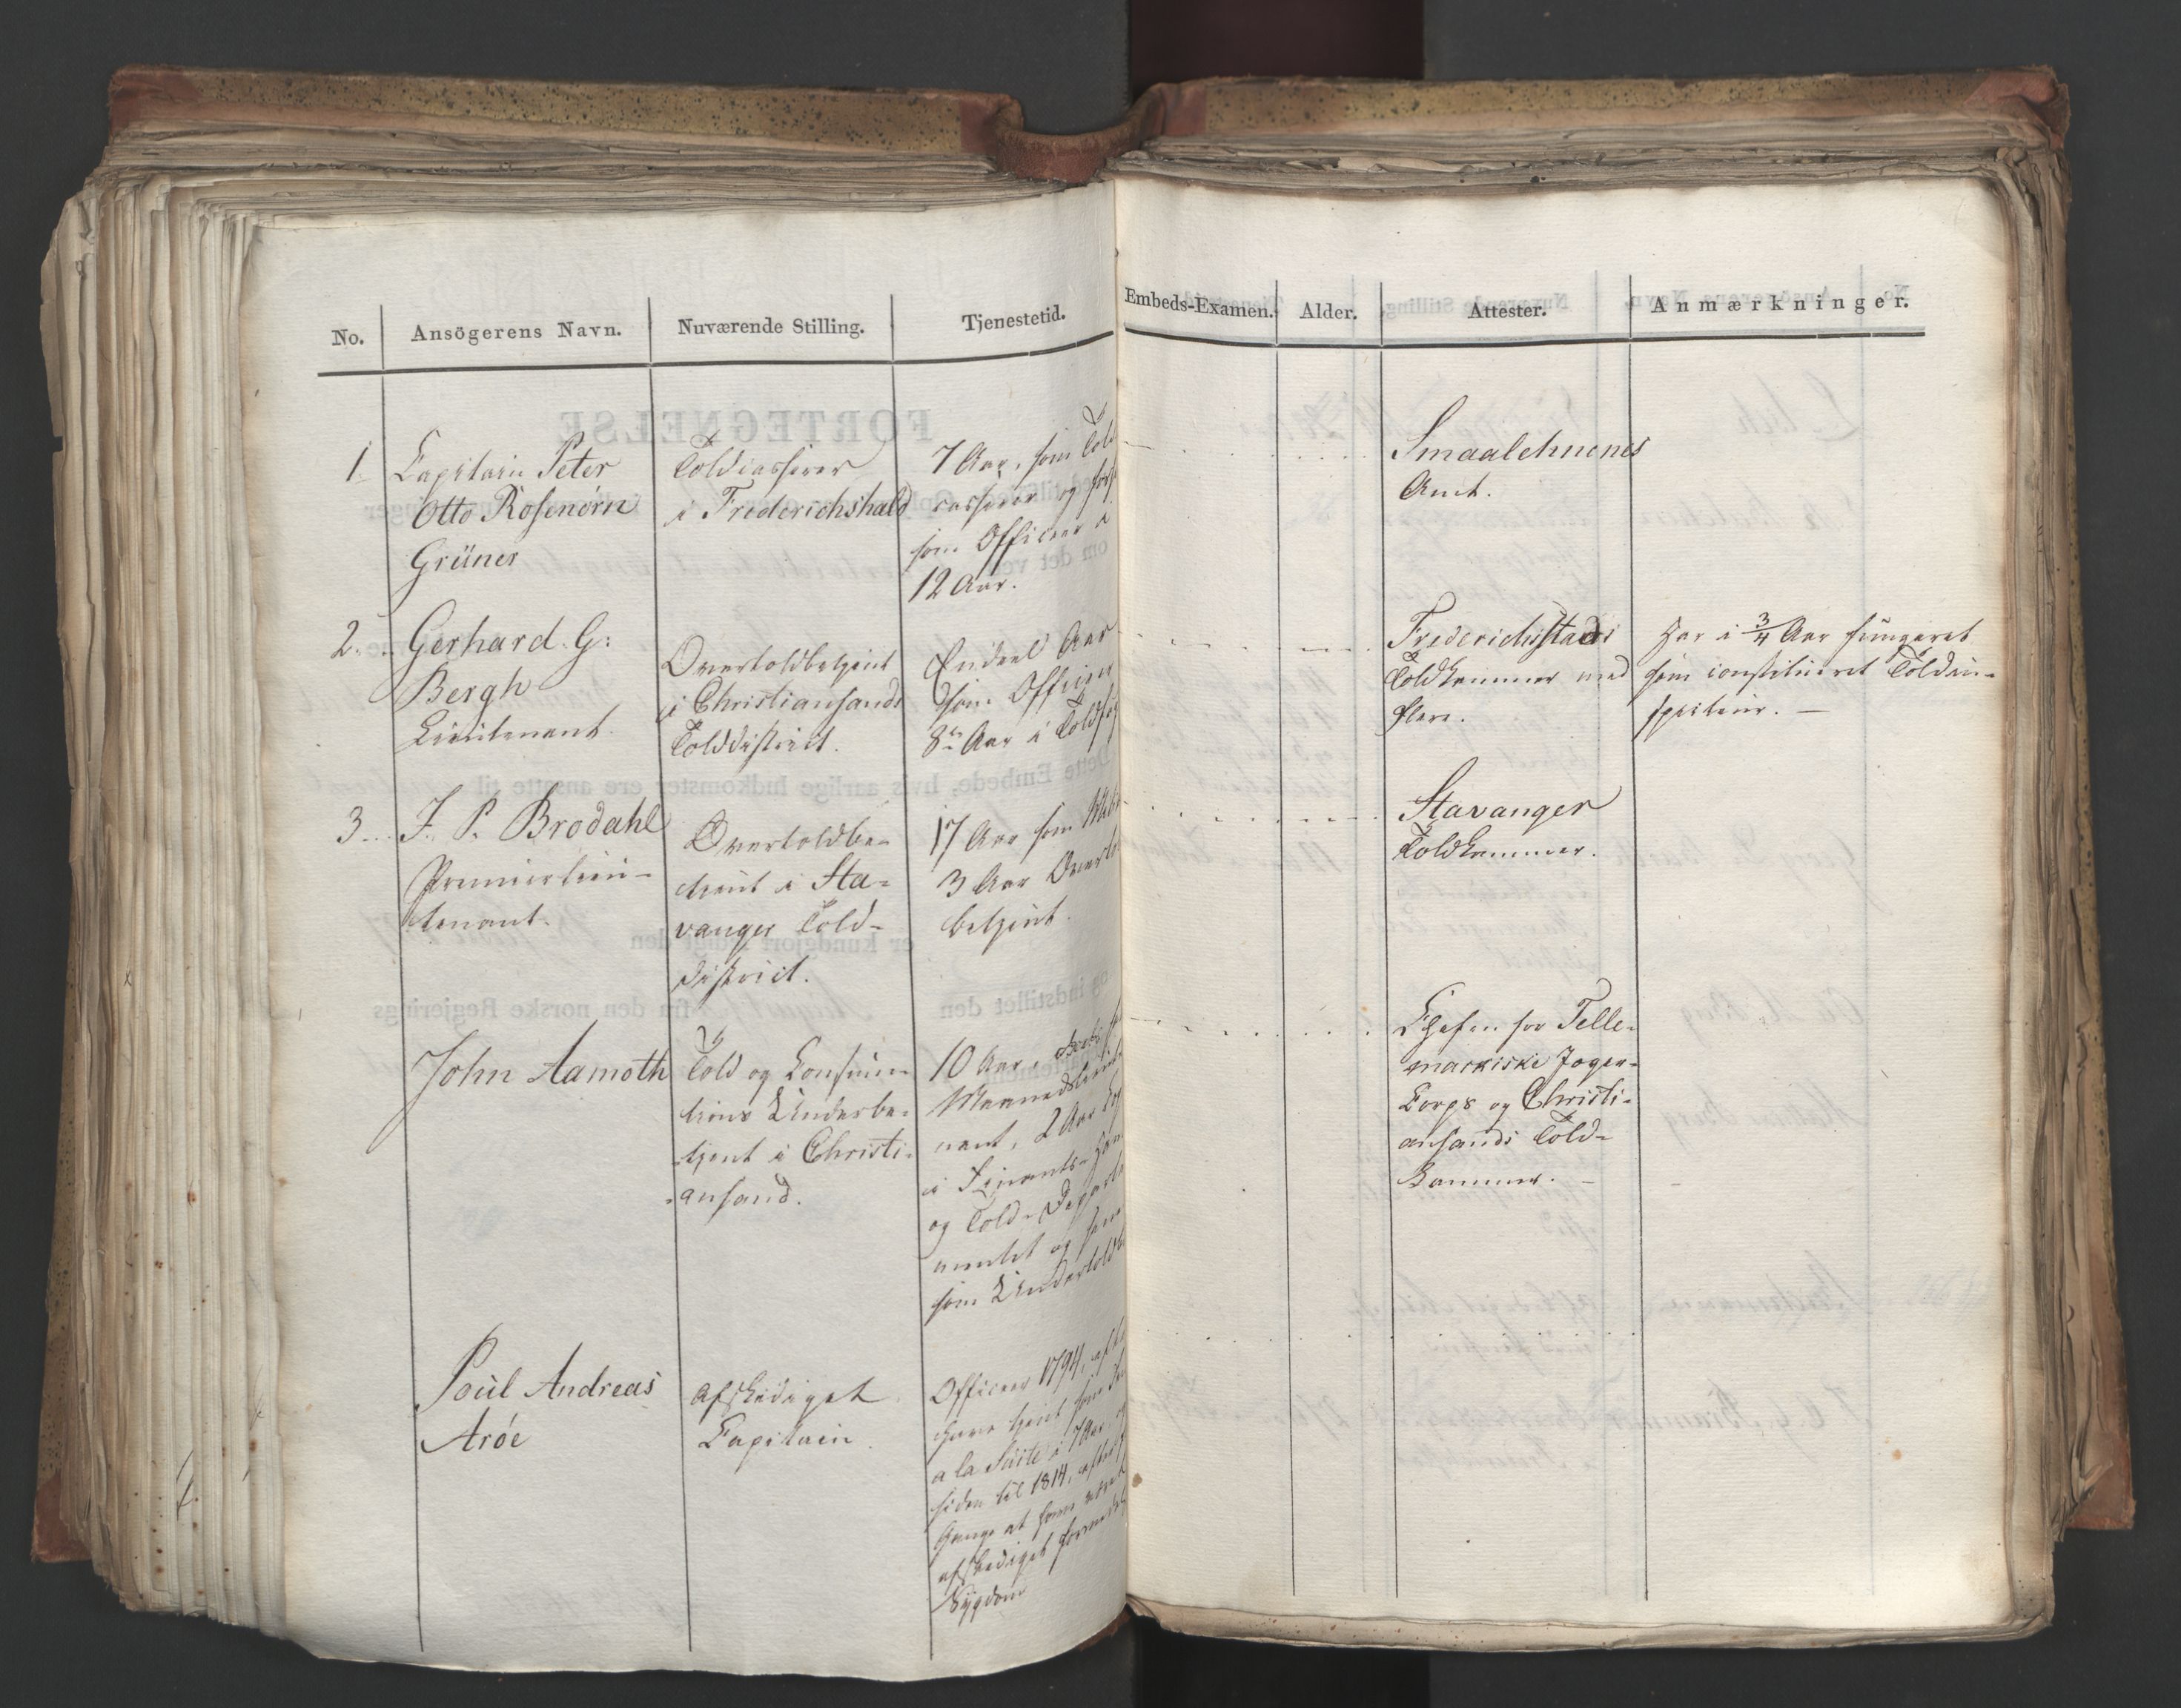 No.
Ansögerens Navn.
Nuværende Stilling.
Tjenestetid.
Embeds-Examen.
Alder.
Attester.
Anmærkninger.
1.
Capitain Peter
Otto Rosenörn
Grüner
Toldcasserer
i Frederichshald
7 Aar, som Told
casserer og
som Officeer i
12 Aar.
Smaalehnenes
Amt.
2.
Gerhard G:
Bergh
Lieutenant.
Overtoldbetjent
i Christiansands
Tolddistrict.
Endeel Aar
som Officier
8te Aar i
Frederichstads
Toldkammer med
flere.
Har i 3/4 Aar fungeret
som constitueret Toldin-
specteur. —
3
J. P. Brodahl
Premierlieu-
tenant.
Overtoldbe-
tjent i Sta-
vanger Told-
district.
17 Aar som
3 Aar
betjent.
Stavanger
Toldkammer.
John Aamoth
Told og Consum-
tions Underbe-
tjent i Christi-
ansand.
10 Aar,
Maaneds
nant, 2 Aar
i Finants-
og Told-
mentet og
som
Chefen for Telle-
markiske Jæger-
Corps og Christi-
ansands Told-
kammer. —
Poül Andreas
Aröe
Afskediget
Capitain
Officeer 1794,
have tjent som
a la Suite i 7 Aar,
siden til 1814,
Gange at have været
afskediget formedelst
Sygdom